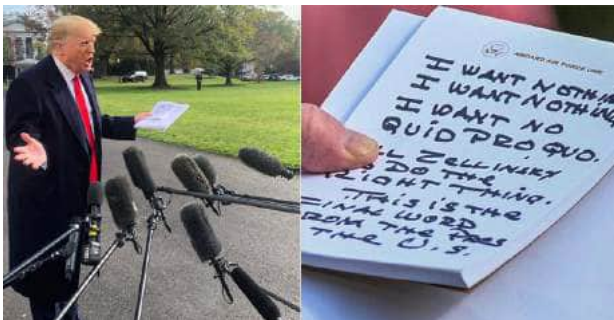 ABOARD AIR FORCE ONE
I WANT NOTHIN
I WANT NOTHING
I WANT NO
QUID PRO QUO.
L ZELLINSKY
O DO THE
RIGHT THING.
THIS IS THE
FINAL WORD
FROM THE PRES
THE U.S.